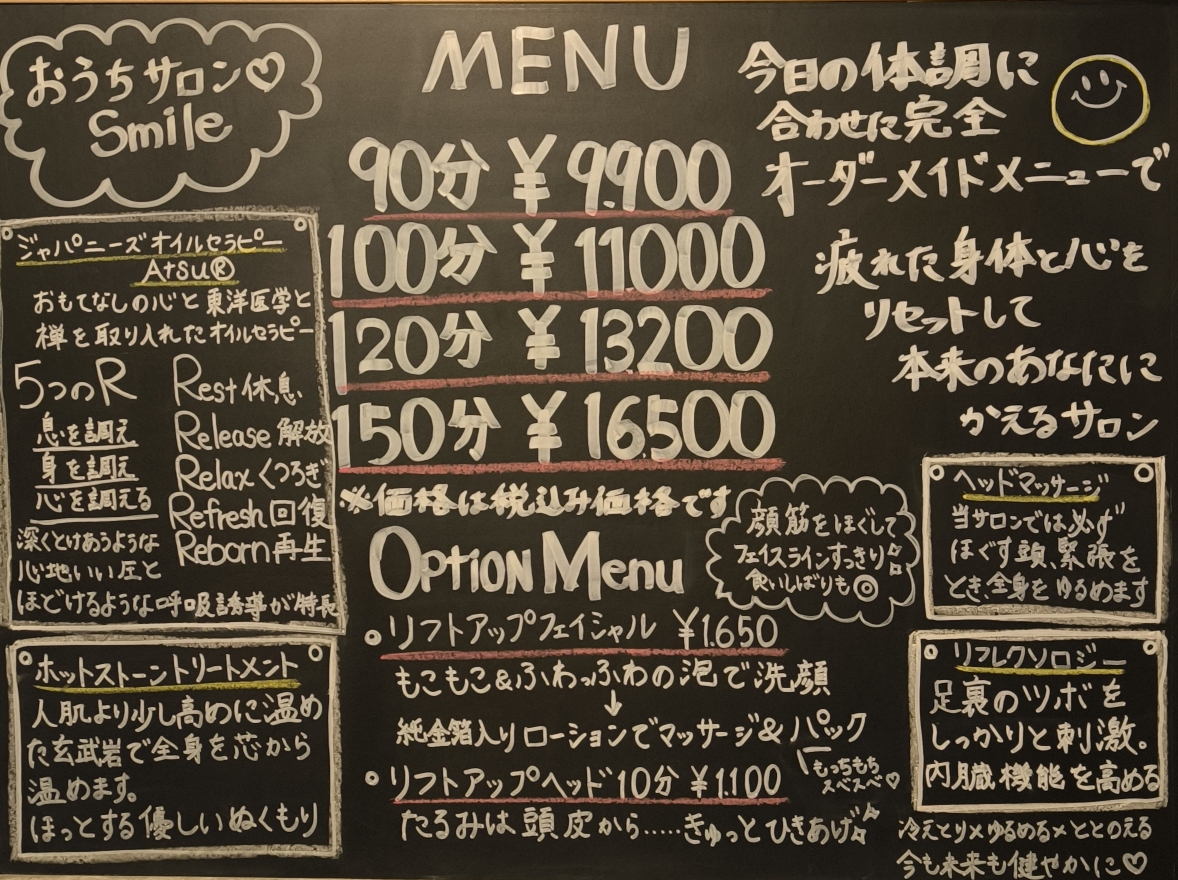 おうちサロン♡
Smile
MENU
90分 ¥ 9.900
100分 ¥ 11000
120分 ¥ 13.200
150分 ¥ 16.500
※価格は税込み価格です
今日の体調に
合わせた完全
オーダーメイドメニューで
疲れた身体と心を
リセットして
本来のあなたに
かえるサロン
ジャパニーズオイルセラピー
Atsu®
おもてなしの心と東洋医学と
禅を取り入れたオイルセラピー
5つのR
息を調え
身を調え
心を調える
Rest 休息
Release 解放
Relax くつろぎ
Refresh 回復
Reborn 再生
深くとけあうような
心地いい圧と
ほどけるような呼吸誘導が特長
ホットストーントリートメント
人肌より少し高めに温め
た玄武岩で全身を芯から
温めます。
ほっとする優しいぬくもり
Option Menu
顔筋をほぐして
フェイスラインすっきり☆
食いしばりも◎
。リフトアップフェイシャル ¥1.650
もこもこ&ふわっふわの泡で洗顔
↓
純金箔入りローションでマッサージ&パック
もっちもち
スベスベ♡
。リフトアップヘッド10分 ¥1.100
たるみは頭皮から.....きゅっとひきあげ☆
ヘッドマッサージ
当サロンでは必ず
ほぐす頭、緊張を
とき、全身をゆるめます
リフレクソロジー
足裏のツボを
しっかりと刺激。
内臓機能を高める
冷えとり×ゆるめる×ととのえる
今も未来も健やかに♡